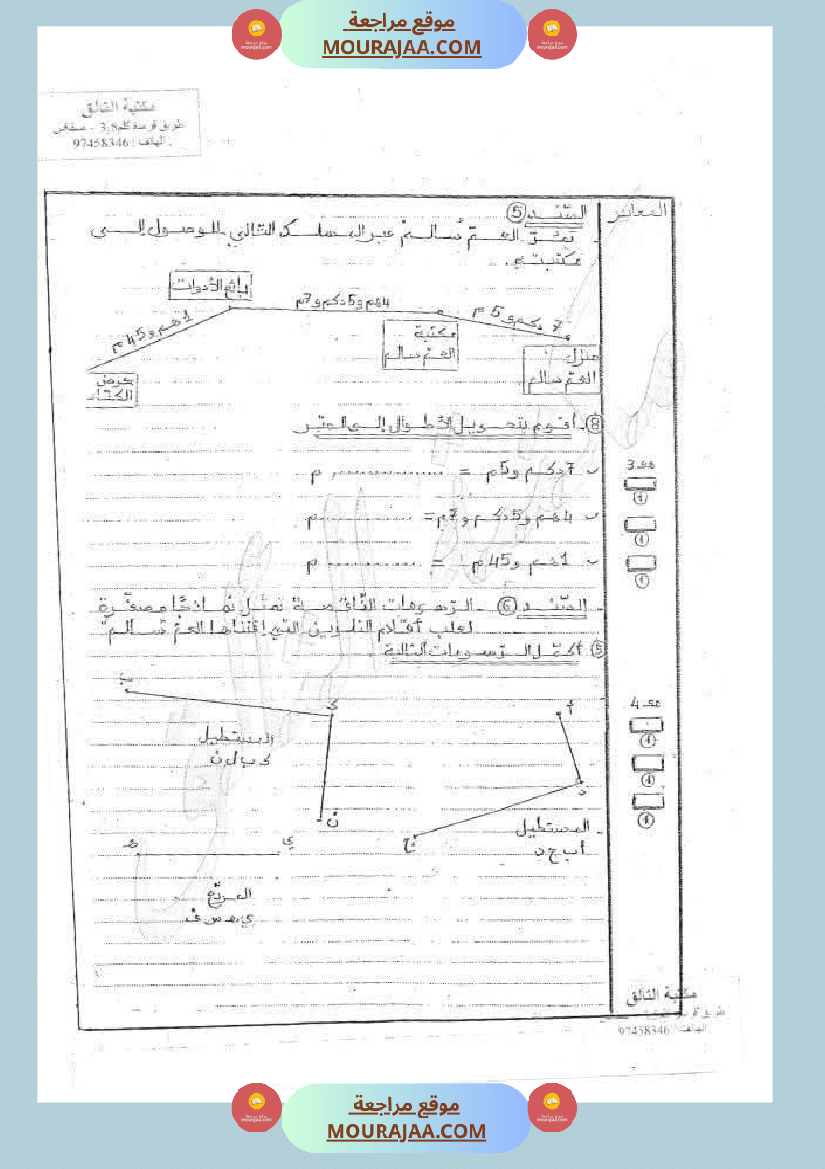 موقع مراجعة
MOURAJAA.COM
مكتبة التالق
طريق قرمدة كلم 3.5 - صفاقس
الهاتف : 97458346
المعايير
السّند ⑤
العمّ سالم عبر المسلك التالي للوصول إلى
مكتبته.
بائع الأدوات
1 هم و 45 م
4 هم و 5 دكم و 7 م
7 دكم و 5 م
مكتبة
العمّ سالم
منزل
العمّ سالم
معرض
الكتاب
⑧ - أقوم بتحويل الأطوال إلى المتر
7 دكم و 5 م = .................. م
4 هم و 5 دكم و 7 م = .............. م
1 هم و 45 م = .............. م
مع 3
- السّند ⑥ - الرّسومات النّاقصة تمثّل نماذجًا مصغّرة
لعلب أقلام التلوين التي اقتناها العمّ سالم
أكمل الرّسومات التالية
مع 4
ب
ك
ن
المستطيل
ك ب ل ن
أ
د
ج
المستطيل
أ ب ج د
ه
ي
المربّع
ي ه س ف
مكتبة التالق
الهاتف : 97458346
موقع مراجعة
MOURAJAA.COM